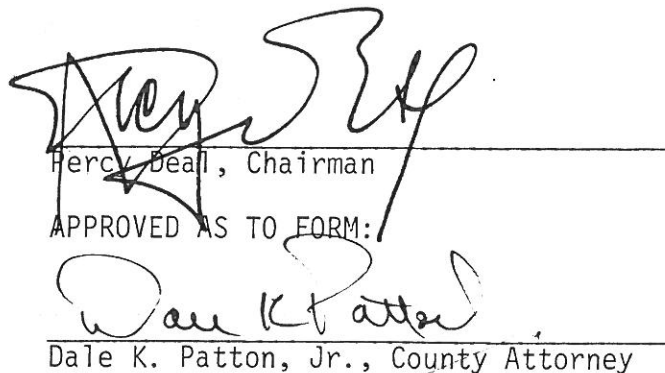 Percy Deal
Percy Deal, Chairman
APPROVED AS TO FORM:
Dale K Patton
Dale K. Patton, Jr., County Attorney